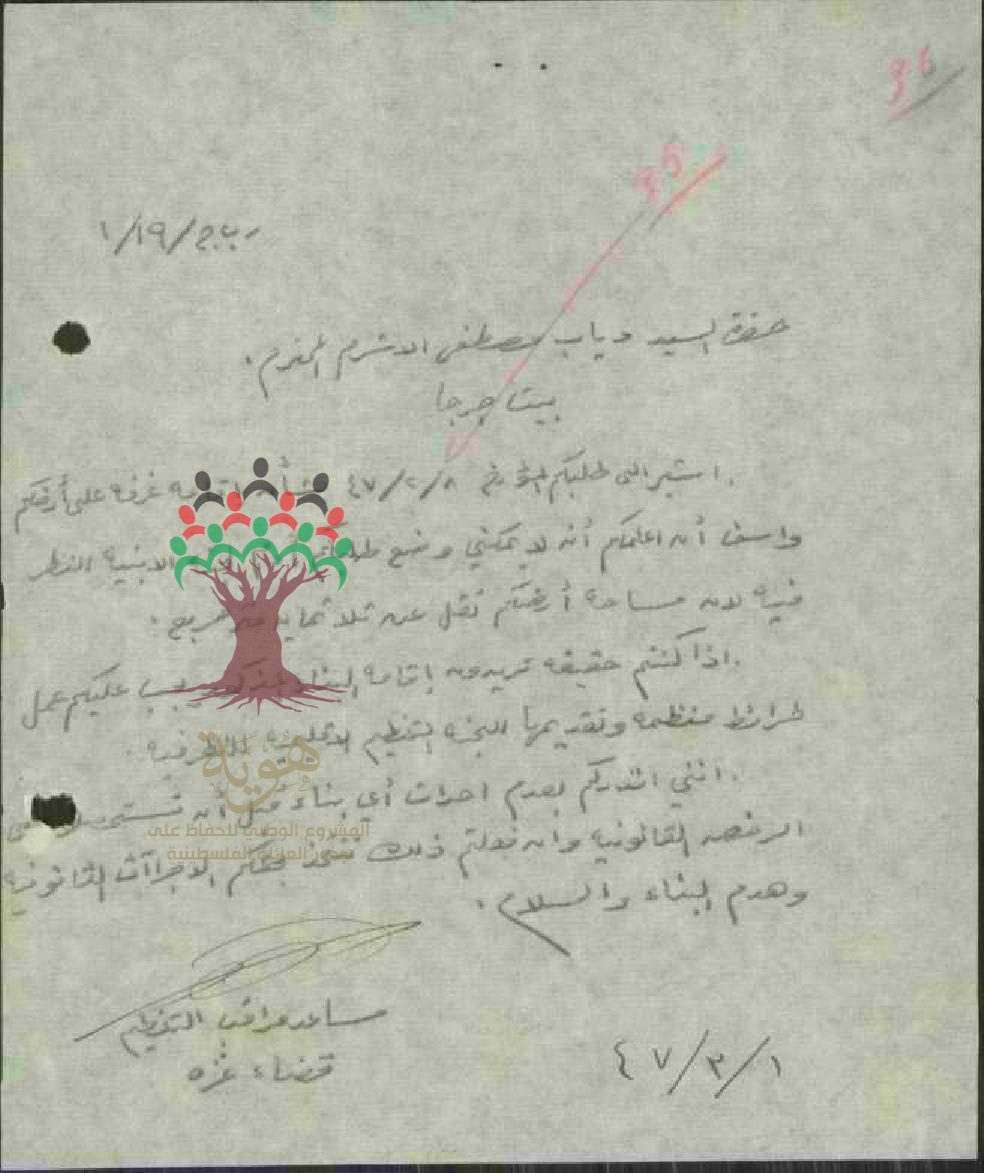 ر ب ج/١٩/١
حضرة السيد دياب مصطفى الاشرم المحترم .
بيت جرجا
. اشير الى طلبكم المؤرخ ٤٧/٢/٨ بشأن اقامة غرفة على أرضكم
واسف أن اعلمكم أنه لا يمكنني وضع طلبكم الابنية النظر
فيه لان مساحة أرضكم تقل عن ثلاثماية متر مربع .
. اذا كنتم حقيقة تريدون إقامة البناء المذكور يجب عليكم عمل
خرائط منظمة وتقديمها للجنة التنظيم الاقليمية للنظر فيه .
. انني انذركم بعدم احداث أي بناء قبل أن تستحصلوا على
الرخصة القانونية وان فعلتم ذلك تتخذ بحقكم الاجراآت القانونية
وهدم البناء والسلام .
مساعد مراقب التنظيم
قضاء غزه
٤٧/٣/١
هوية
المشروع الوطني للحفاظ على
جذور العائلة الفلسطينية